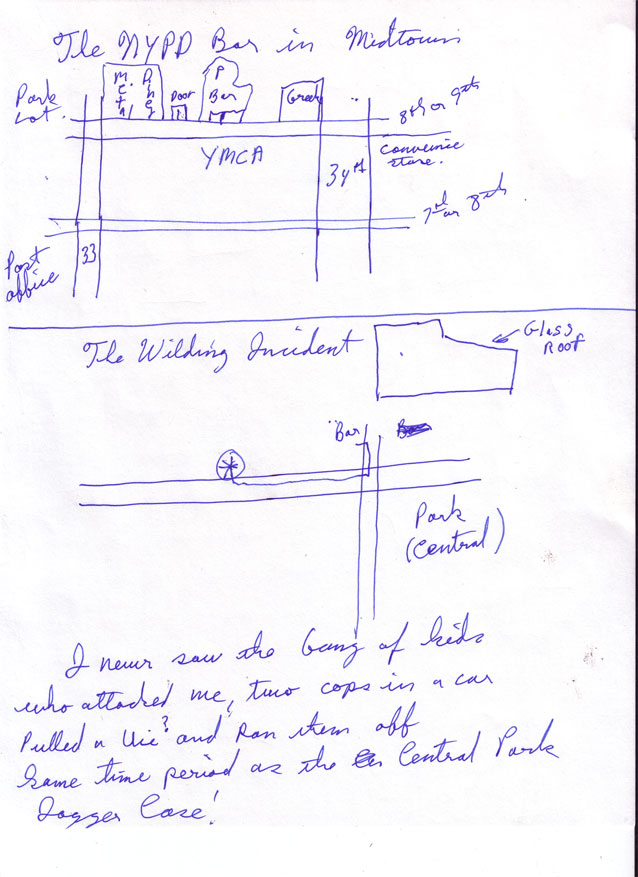 The NYPD Bar in Midtown
Park
Lot.
Meth.
Door
P
Bar
Greek
8th or 9th
YMCA
34th
Convenience
store.
7th or 8th
Post
office
33
The Wilding Incident
Glass
Roof
Bar
Park
(Central)
I never saw the Gang of kids
who attacked me, two cops in a car
Pulled a Uie? and Ran them off
Same time period as the Central Park
Jogger Case!